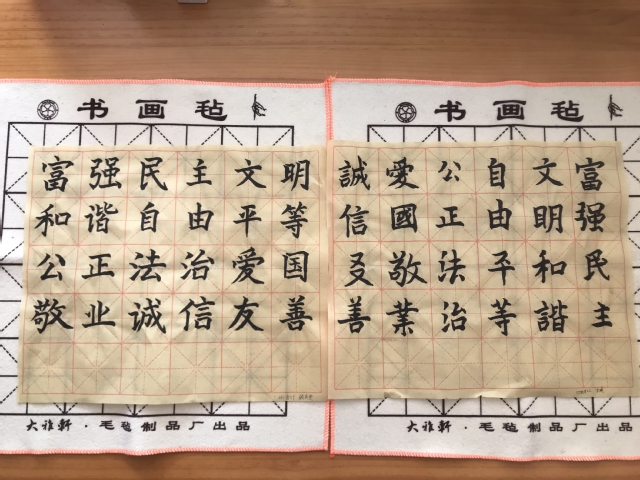 书画毡
富强民主文明
和谐自由平等
公正法治爱国
敬业诚信友善
大雅軒·毛毡制品厂出品
书画毡
富强民主
文明和諧
自由平等
公正法治
愛國敬業
誠信友善
大雅軒·毛毡制品厂出品